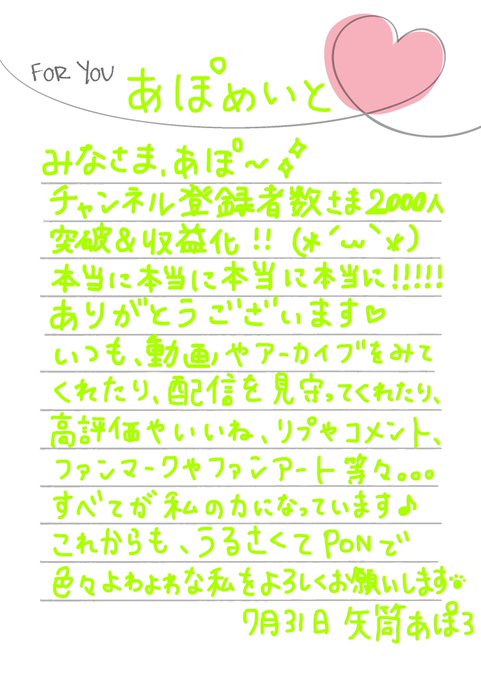 FOR YOU
あぽめいと
みなさま、あぽ〜
チャンネル登録者数さま2000人
突破&収益化!! (*´ω`*)
本当に本当に本当に本当に!!!!!
ありがとうございます♡
いつも、動画やアーカイブをみて
くれたり、配信を見守ってくれたり、
高評価やいいね、リプやコメント、
ファンマークやファンアート等々。。。
すべてが私の力になっています♪
これからも、うるさくてPONで
色々よわよわな私をよろしくお願いします
7月31日 矢筒あぽろ